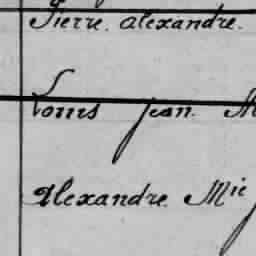 Pierre. alexandre.
Louis Jean. M
Alexandre. Mic